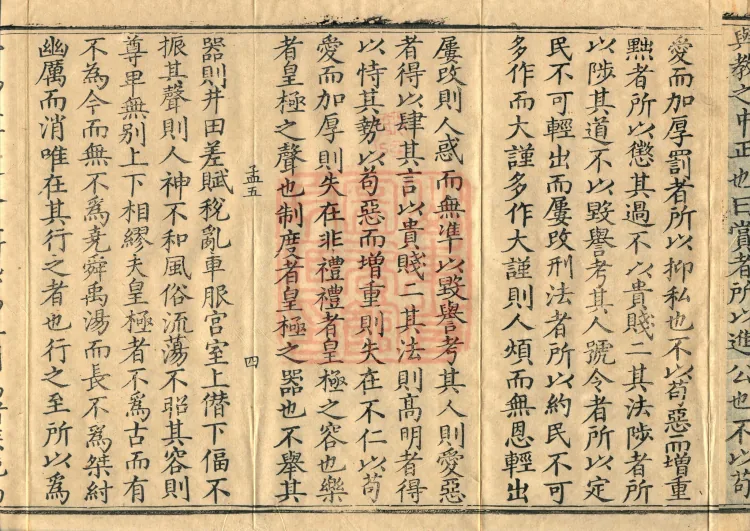 與教之中正也曰賞者所以進公也不以苟
愛而加厚罰者所以抑私也不以苟惡而增重
黜者所以懲其過不以貴賤二其法陟者所
以陟其道不以毀譽考其人號令者所以定
民不可輕出而屢改刑法者所以約民不可
多作而大謹多作大謹則人煩而無恩輕出
屢改則人惑而無準以毀譽考其人則愛惡
者得以肆其言以貴賤二其法則髙明者得
以恃其勢以苟惡而增重則失在不仁以苟
愛而加厚則失在非禮禮者皇極之容也樂
者皇極之聲也制度者皇極之器也不舉其
孟五
四
器則井田差賦稅亂車服宮室上僣下偪不
振其聲則人神不和風俗流蕩不昭其容則
尊卑無別上下相繆夫皇極者不爲古而有
不為今而無不爲堯舜禹湯而長不爲桀紂
幽厲而消唯在其行之者也行之至所以爲